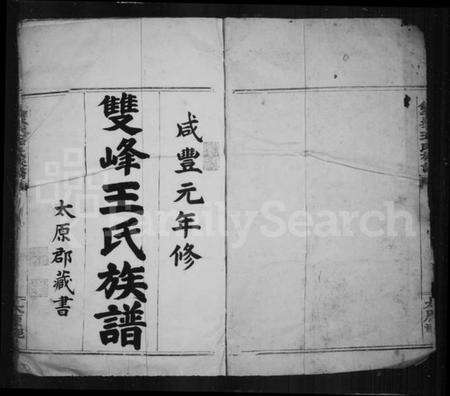 咸豐元年修
雙峰王氏族譜
太原郡藏書
FamilySearch